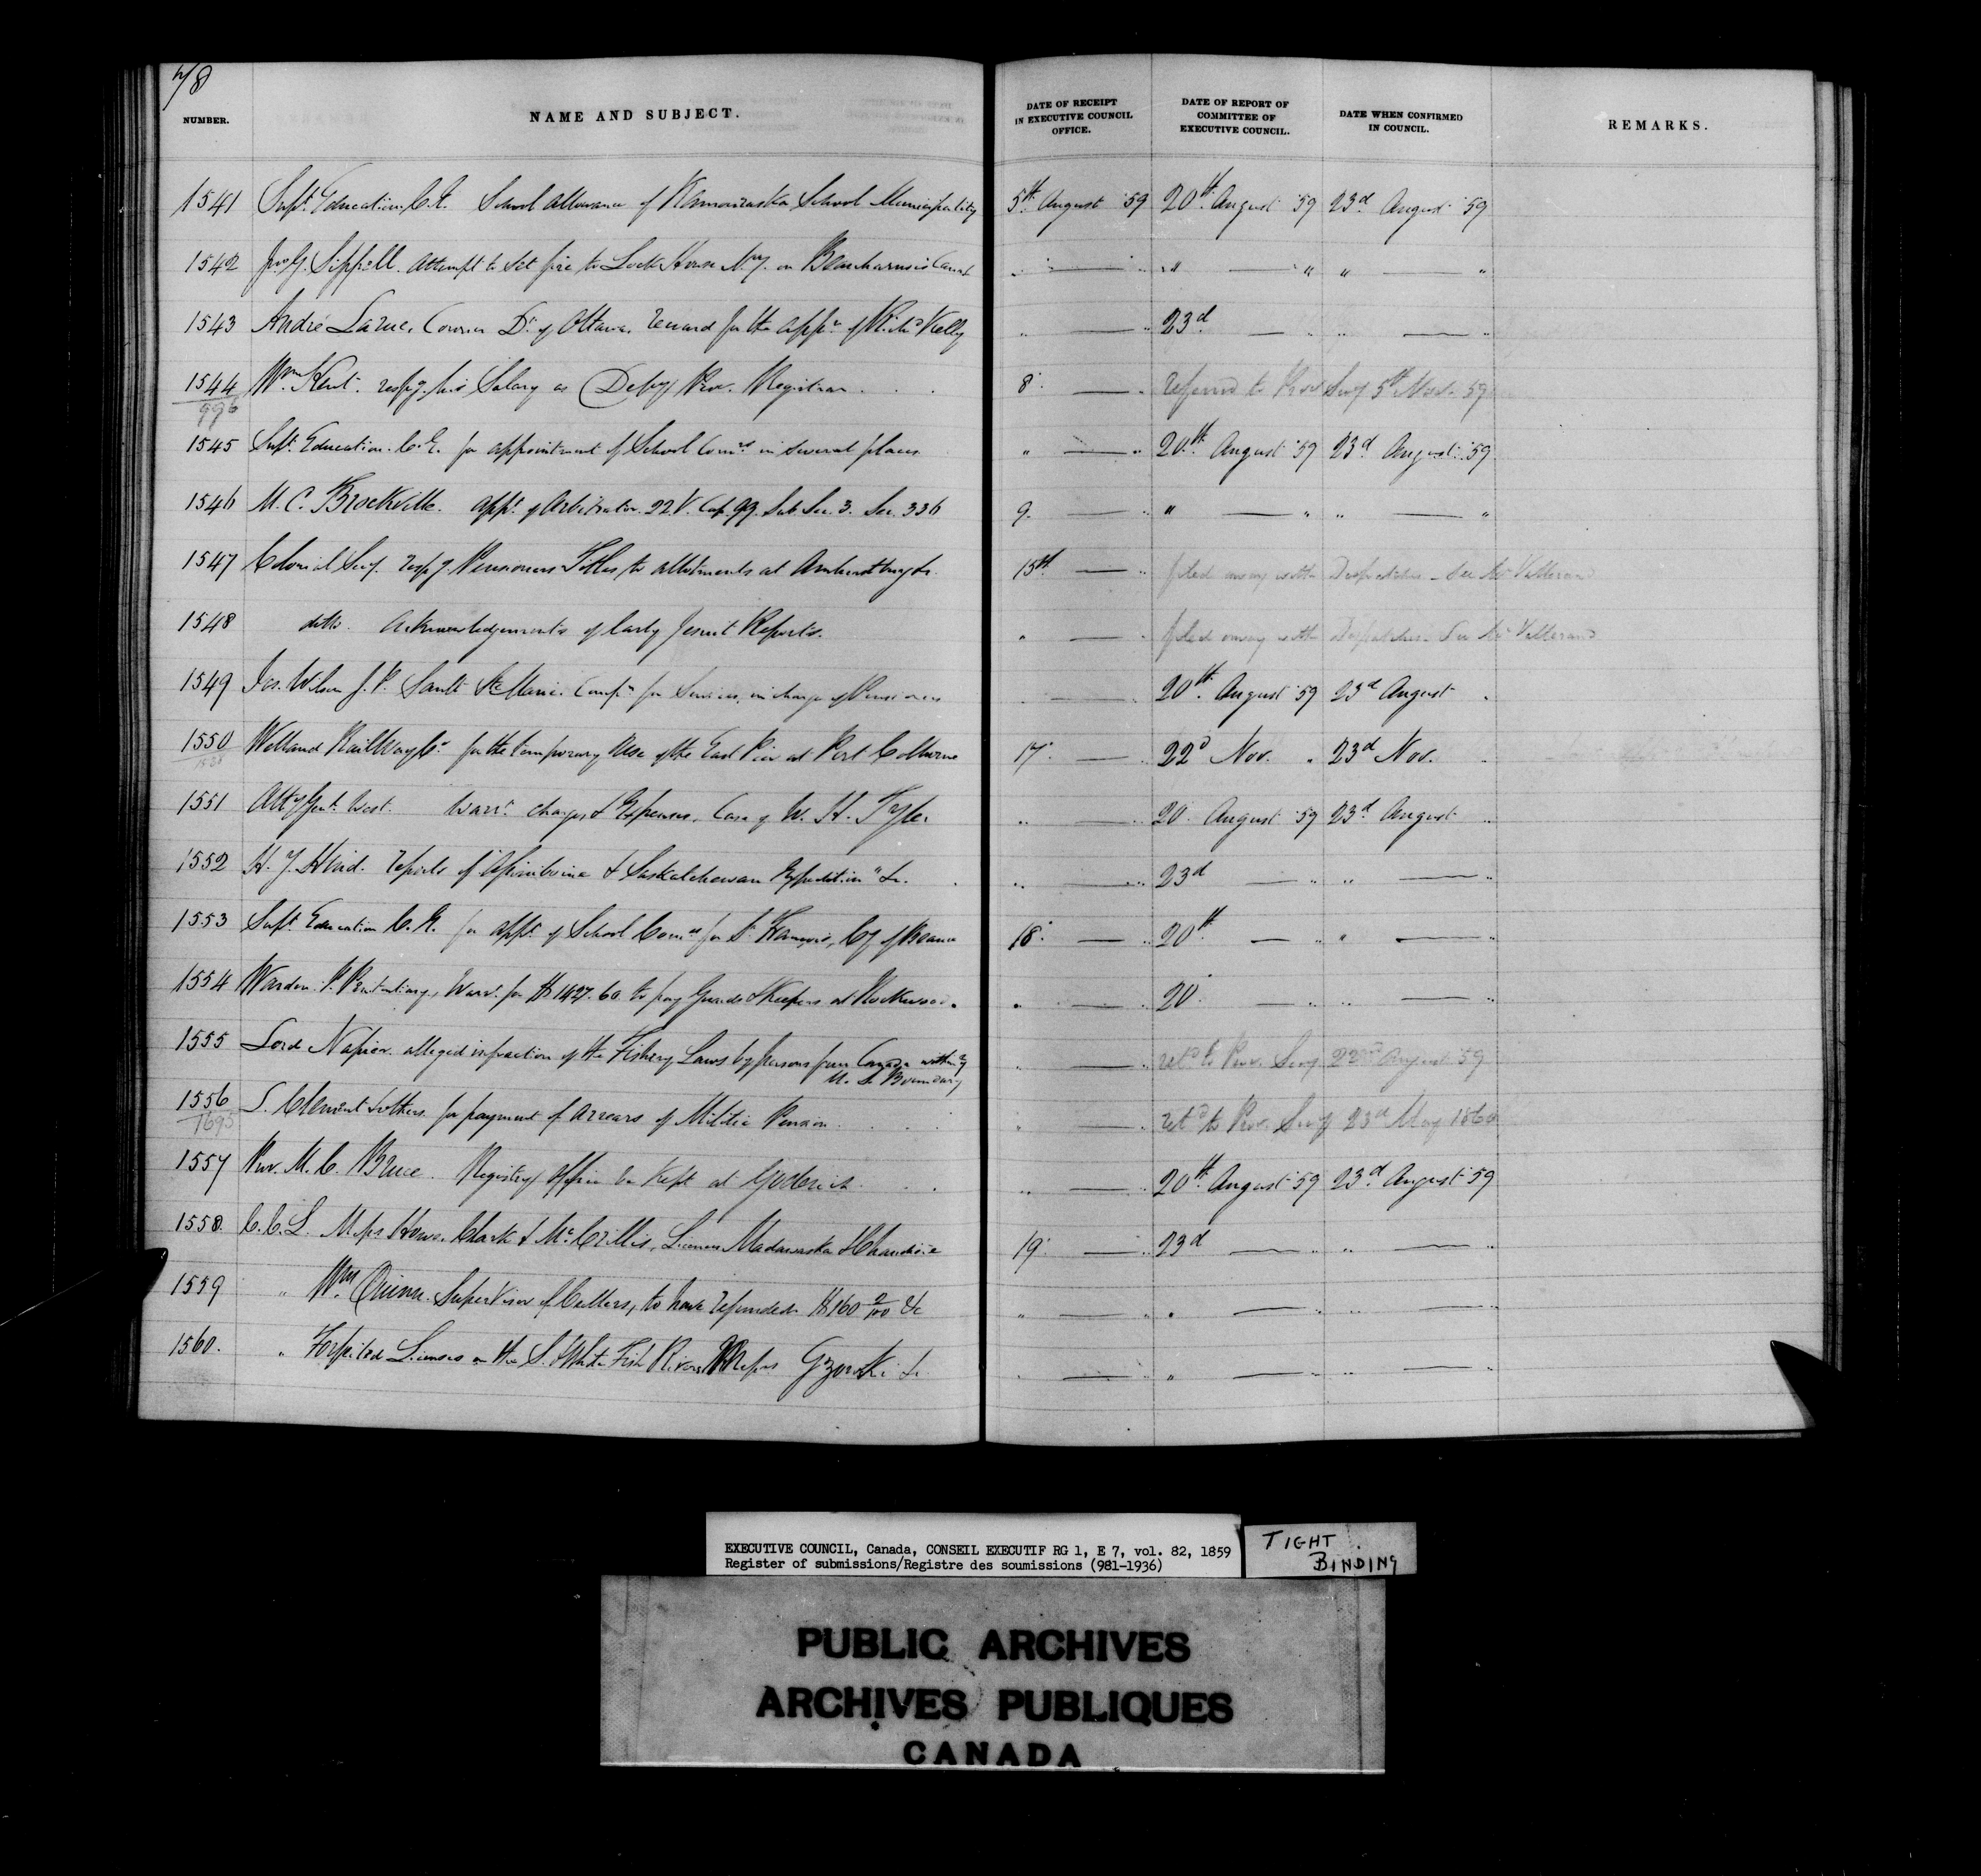 78
NUMBER. NAME AND SUBJECT. DATE OF RECEIPT IN EXECUTIVE COUNCIL OFFICE. DATE OF REPORT OF COMMITTEE OF EXECUTIVE COUNCIL. DATE WHEN CONFIRMED IN COUNCIL. REMARKS.
1541 Supt. Education C.E. School allowance of Kamouraska School Municipality 5th August '59 20th August '59 23d August '59
1542 Jno. G. Sippell. Attempt to set fire to Lock House on Beauharnois Canal " — " " — " " — "
1543 André Larue, Coroner Dt. of Ottawa, reward for the appn. of Richd. Kelly " — " 23d — " " — "
1544 Wm. Kent. respg. his Salary as Depy Prov. Registrar 8 — " referred to Prov Secy 5th Nov. 59
996
1545 Supt. Education. C.E. for appointment of School Comrs. in several places " — " 20th August '59 23d August '59
1546 M. C. Brockville. appt. of Arbitrator. 22 V. Cap 99. Sub Sec. 3. Sec. 336 9 — " " — " " — "
1547 Colonial Secy. respg. Pensioners Titles to allotments at Amherstburg &c. 15th — " filed away with Despatches - See Mr
1548 ditto. Acknowledgements of early Jesuit Reports. " — " filed away with Despatches - See Mr
1549 Jos. Wilson J. P. Sault Ste Marie. Compn. for Services, in charge of Pensioners — 20th August '59 23d August "
1550 Welland Railway Co. for the temporary Use of the East Pier at Port Colborne 17 — " 22d Nov. " 23d Nov. "
1551 Atty Genl. West. Warrt. charges & Expenses, Case of W. H. Tyler " — " 20 August '59 23d August "
1552 H. Y. Hind. reports of "Assiniboine & Saskatchewan Expedition" &c. " — " 23d — " " — "
1553 Supt. Education C.E. for appt. of School Comrs. for St. François, Cy of Beauce 18 — " 20th — " " — "
1554 Warden P. Penitentiary, Warrt. for $1427.60 to pay Guards & Keepers at Rockwood. " — " 20 — " " — "
1555 Lord Napier. alleged infraction of the Fishery Laws by persons from Canada within
U. S. Boundary " — " retd to Prov. Secy 22nd August 59
1556 S. Clement & others for payment of Arrears of Militia Pension " — " retd to Prov. Secy 23d May 1860
1695
1557 Prov. M. C. Bruce. Registry Office be kept at Goderich " — " 20th August '59 23d August '59
1558. C. C. L. Messrs Howe, Clark & McCrillis, Licenses Madawaska & Chaudière 19 — " 23d — " " — "
1559 " Wm. Quinn Supervisor of Cullers, to have refunded $160 2/100 &c " — " " — " " — "
1560. " Forfeited Licenses on the S. & White Fish Rivers Messrs Gzowski &c. " — " " — " " — "
EXECUTIVE COUNCIL, Canada, CONSEIL EXECUTIF RG 1, E 7, vol. 82, 1859
Register of submissions/Registre des soumissions (981-1936)
TIGHT
BINDING
PUBLIC ARCHIVES
ARCHIVES PUBLIQUES
CANADA